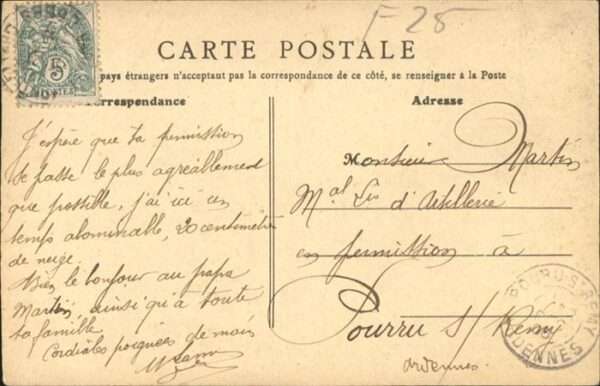 F 25
CARTE POSTALE
pays étrangers n'acceptant pas la correspondance de ce côté, se renseigner à la Poste
Correspondance
Adresse
J'espère que ta permission
se passe le plus agréablement
que possible, j'ai ici un
temps abominable, 20 centimètres
de neige.
Bien le bonjour au papa
Martin, ainsi qu'à toute
ta famille.
Cordiales poignées de main
Monsieur Martin
Mal Lis d'Artillerie
en permission à
Pourru S/ Remy
Ardennes
POURU-ST-REMY
ARDENNES
5
POSTES